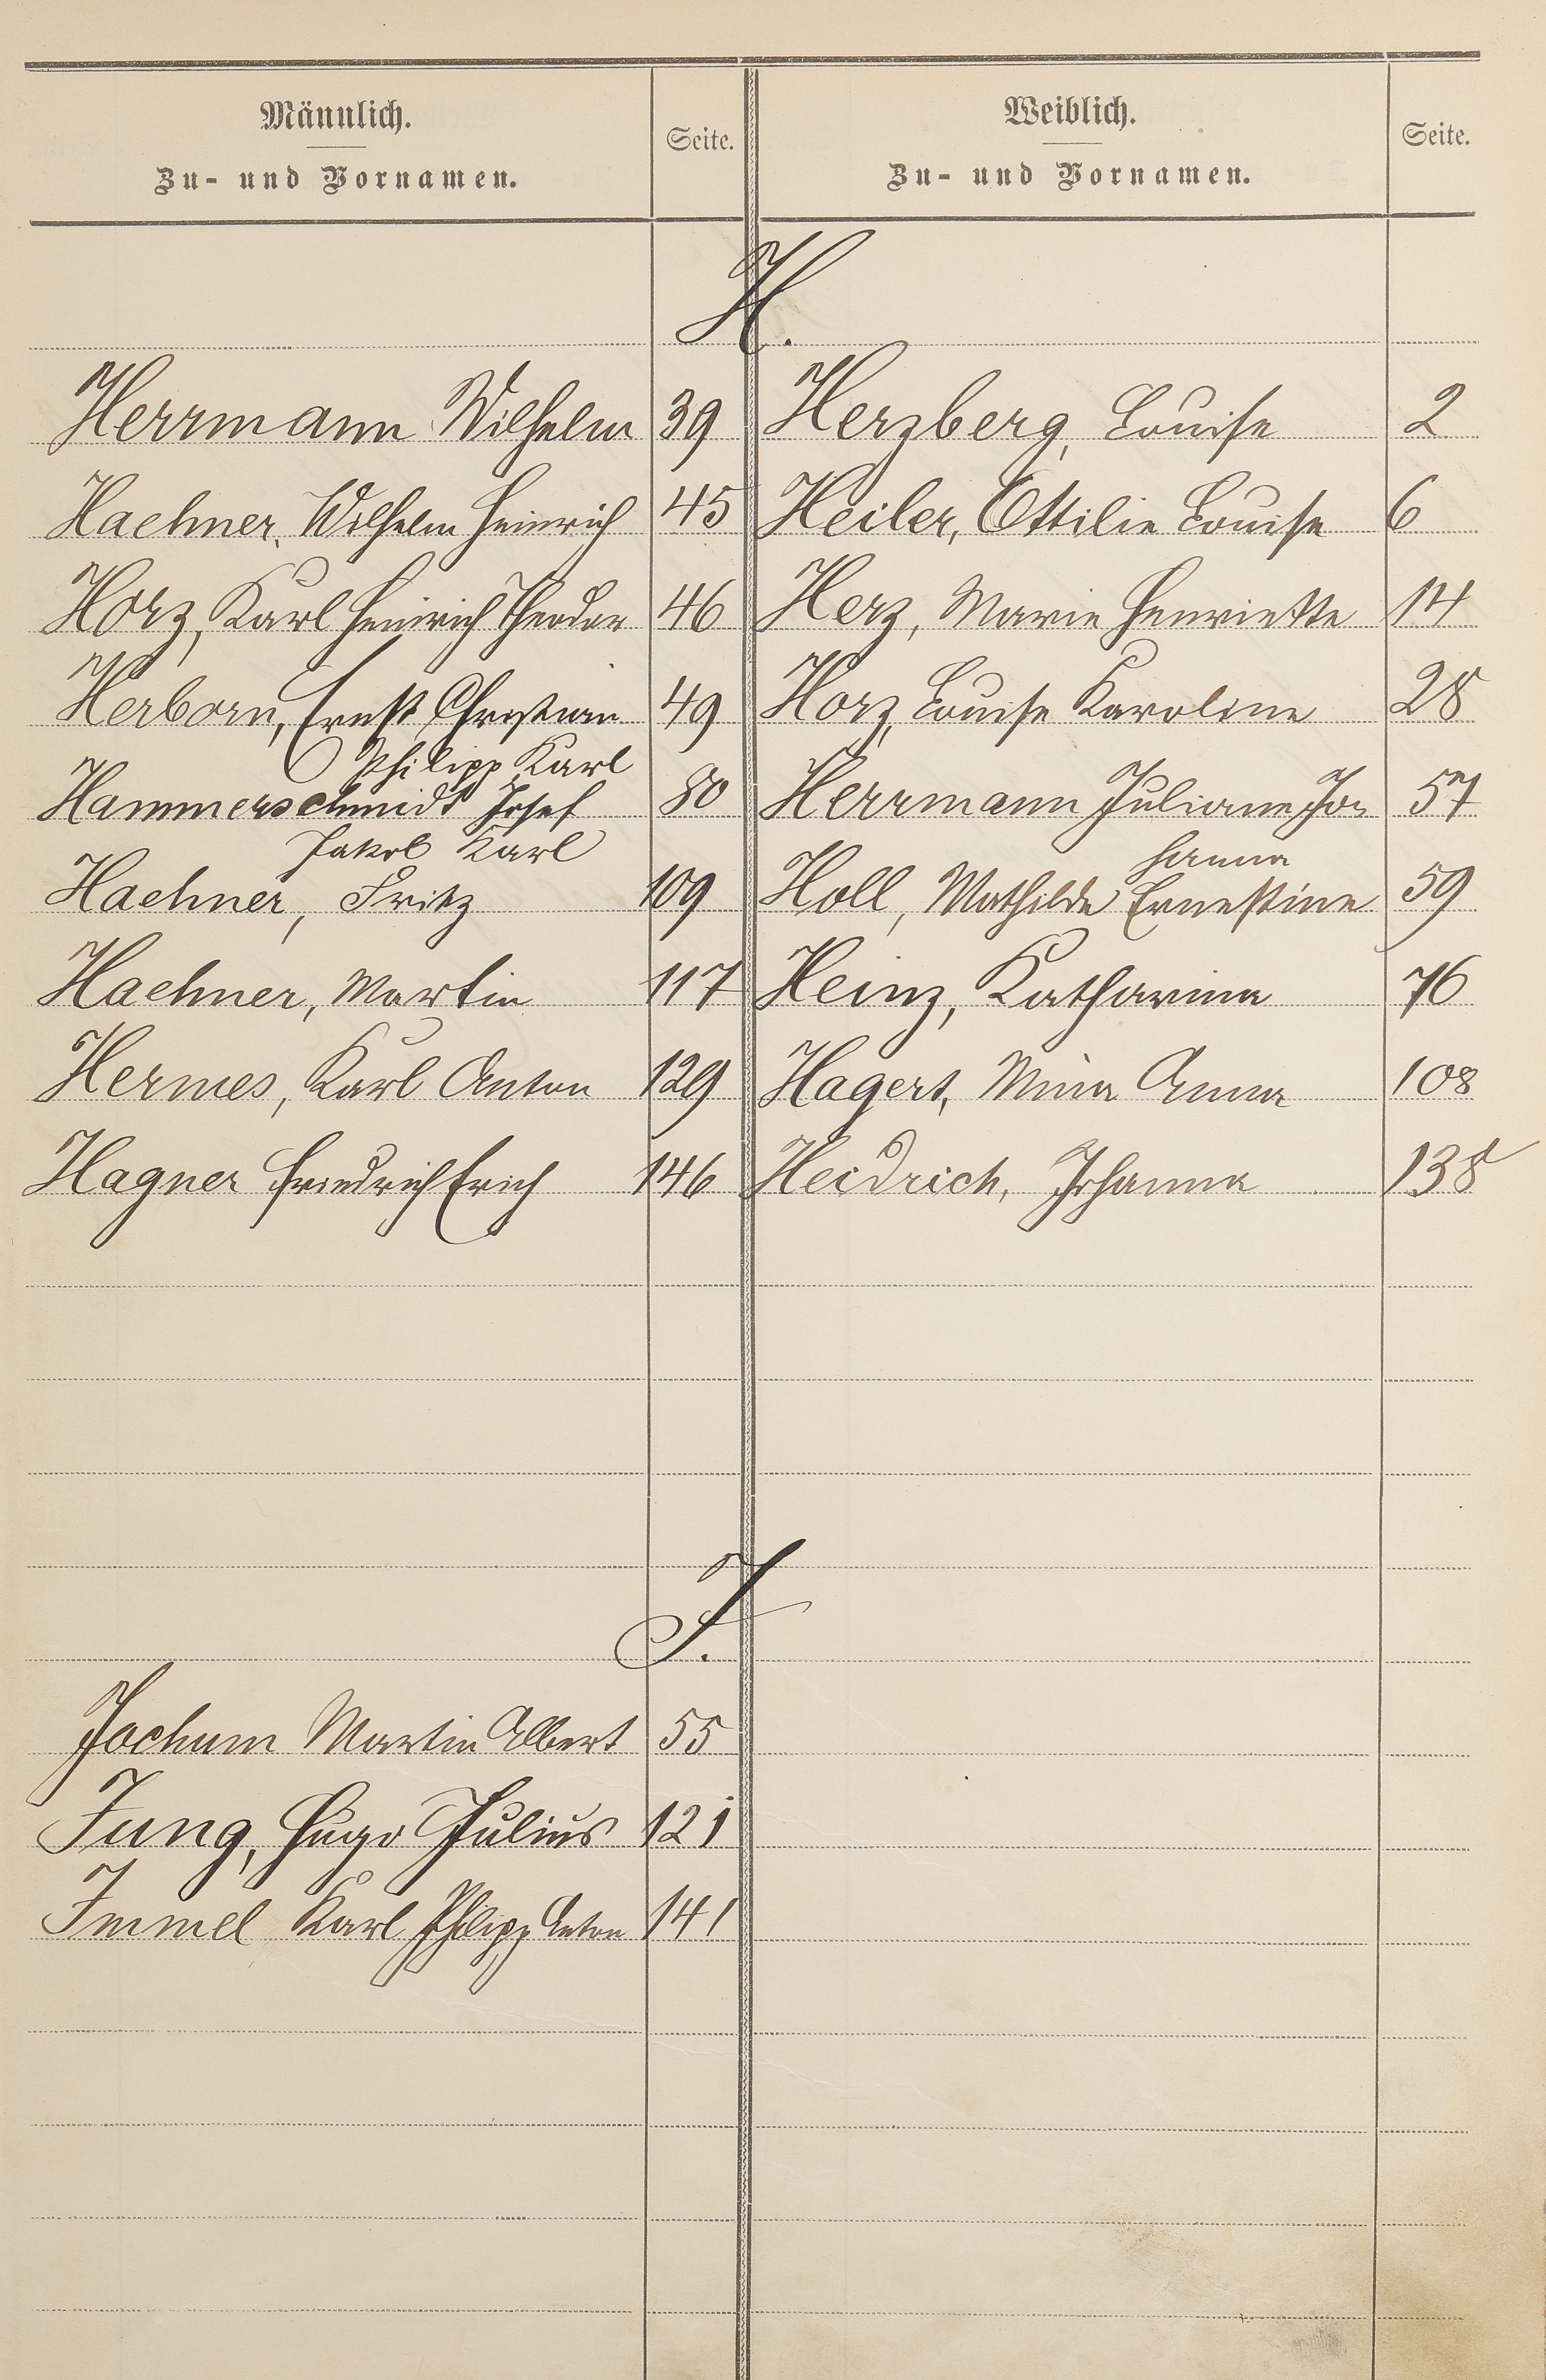 Männlich.
Zu- und Vornamen.
Seite.
Weiblich.
Zu- und Vornamen.
Seite.
H.
Herrmann Wilhelm 39 Herzberg, Louise 2
Haehner, Wilhelm Heinrich 45 Heiler, Ottilie Louise 6
Horz, Karl Heinrich Theodor 46 Herz, Marie Henriette 14
Herborn, Ernst Christian 49 Horz, Louise Karoline 28
Philipp Karl
Hammerschmidt Josef 80 Herrmann Juliane Jo- 57
Jakob Karl hanna
Haehner, Fritz 109 Holl, Mathilde Ernestine 59
Haehner, Martin 117 Heinz, Katharina 76
Hermes, Karl Anton 129 Hagert, Mina Anna 108
Hagner Friedrich Erich 146 Heidrich, Johanna 138
J.
Jochum Martin Albert 55
Jung, Hugo Julius 121
Immel Karl Philipp Anton 141